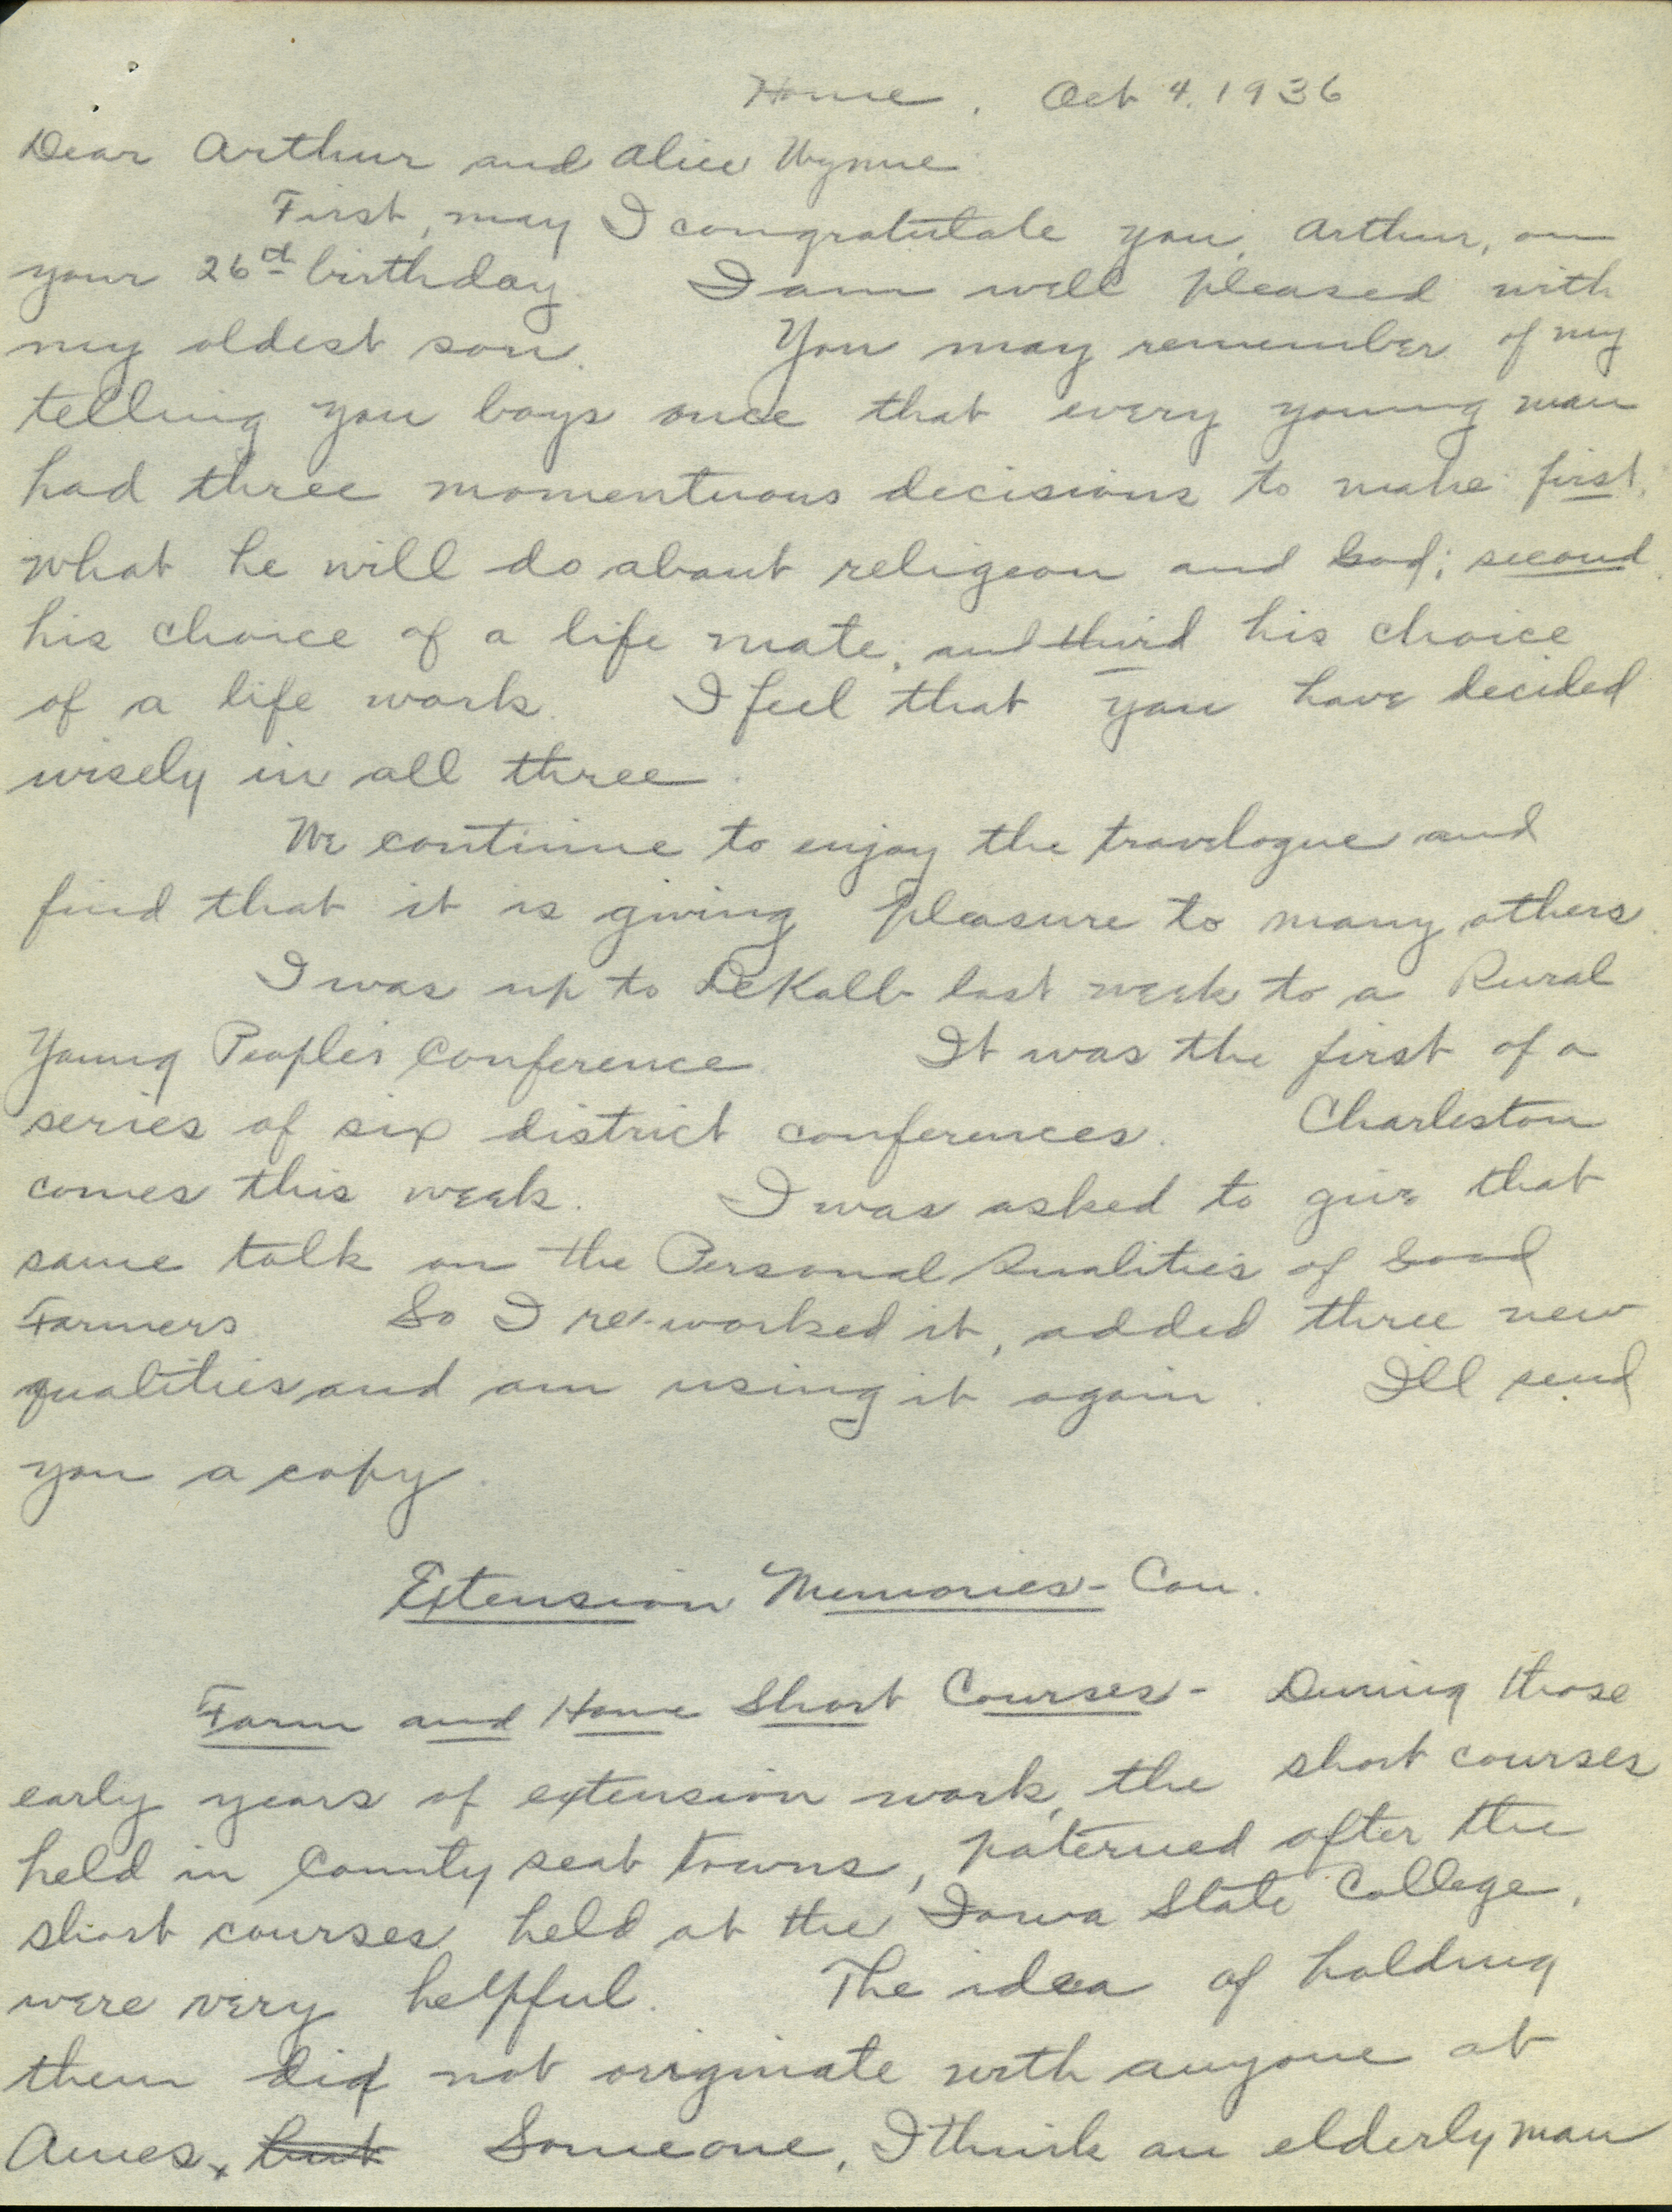 Home. Oct 4, 1936
Dear Arthur and Alice Wynne
First, may I congratulate you, Arthur, on
your 26th birthday. I am well pleased with
my oldest son. You may remember of my
telling you boys once that every young man
had three momentuous decisions to make: first,
what he will do about religeon and God; second
his choice of a life mate; and third his choice
of a life work. I feel that you have decided
wisely in all three.
We continue to enjoy the travelogue and
find that it is giving pleasure to many others.
I was up to DeKalb last week to a Rural
Young People's Conference. It was the first of a
series of six district conferences. Charleston
comes this week. I was asked to give that
same talk on the Personal Qualities of Good
Farmers So I re-worked it, added three new
qualities and am using it again. I'll send
you a copy.
Extension Memories - Con.
Farm and Home Short Courses - During those
early years of extension work, the short courses
held in County seat towns, paterned after the
short courses held at the Iowa State College,
were very helpful. The idea of holding
them did not originate with anyone at
Ames. but Someone, I think an elderly man